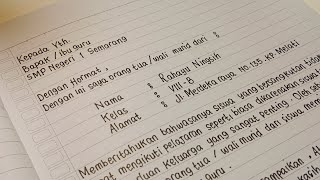 Kepada Yth.
Bapak / ibu guru
SMP Negeri 1 Semarang
Dengan Hormat,
Dengan ini saya orang tua / wali murid dari :
Nama : Rahayu Ningsih
Kelas : VIII - B
Alamat : Jl Merdeka raya No.135 KP. Melati
Memberitahukan bahwasanya siswa yang bersangkutan tidak
mengikuti pelajaran seperti biasa dikarenakan
keluarga yang sangat penting. Oleh
orang tua / wali murid dan siswa
guru.